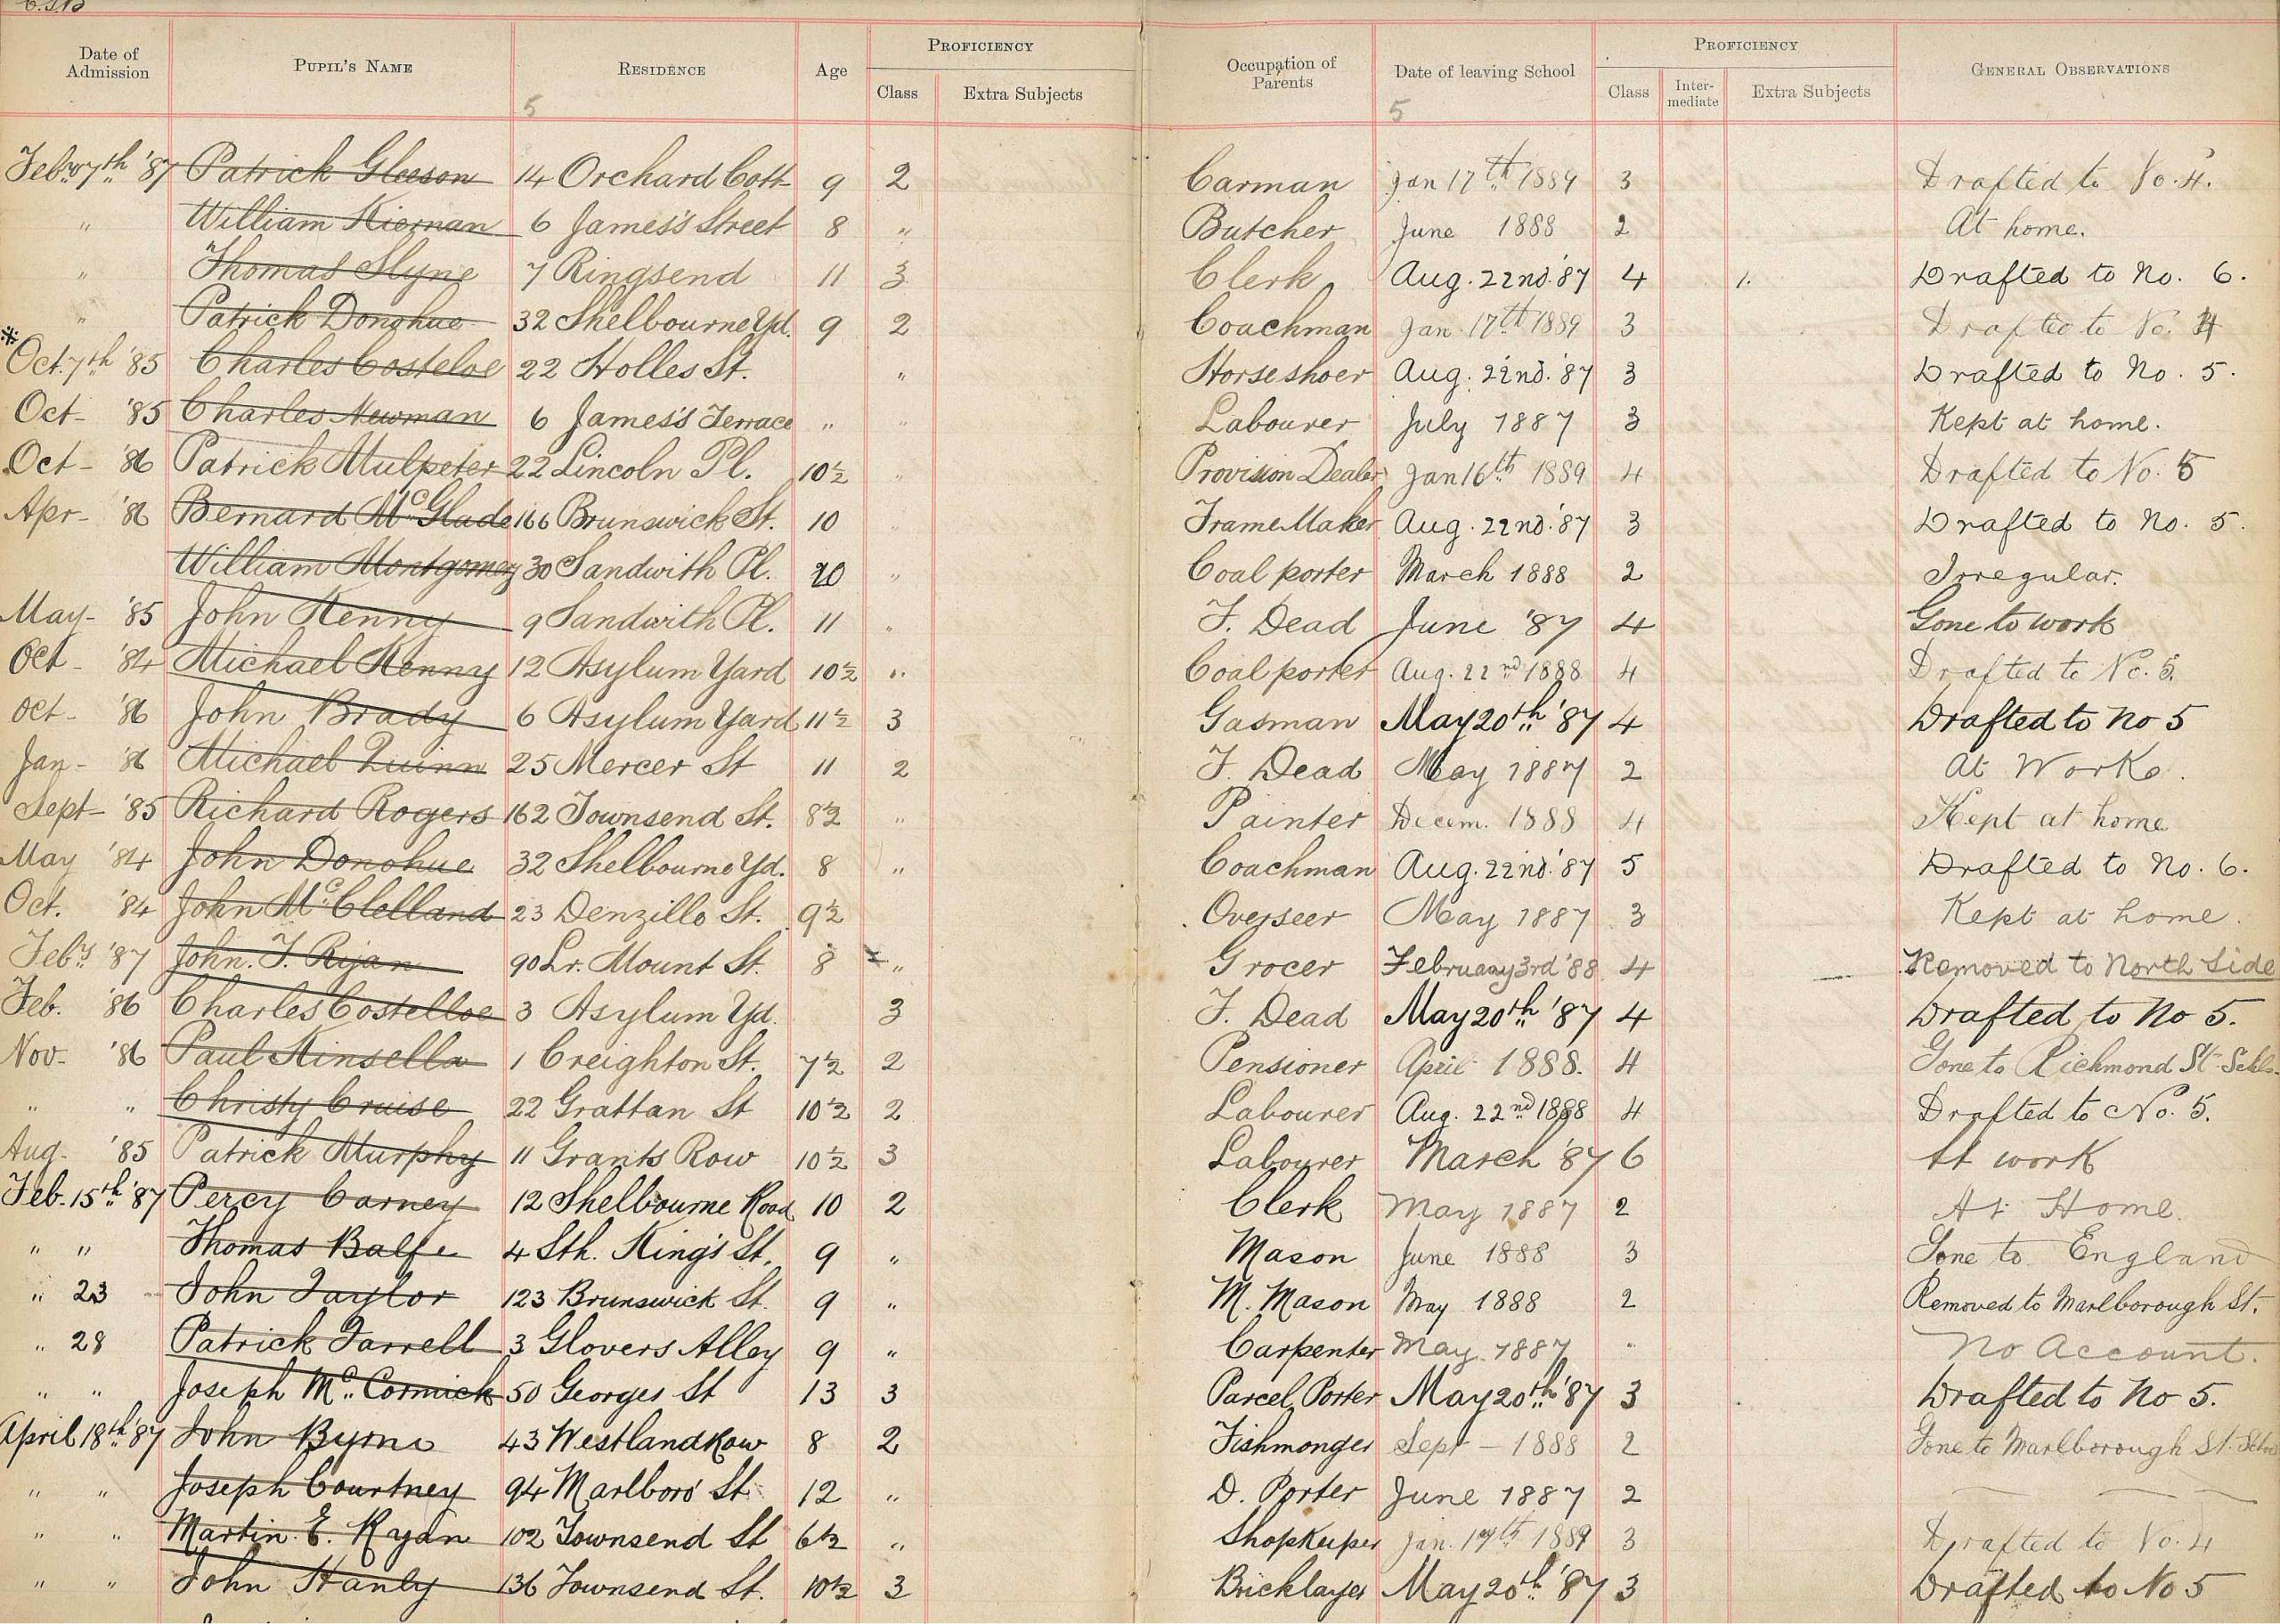 Date of Admission Pupil's Name Residence Age Proficiency Class Extra Subjects Occupation of Parents Date of leaving School Proficiency Class Inter-mediate Extra Subjects General Observations
5 5
Feby 7th '87 Patrick Gleeson 14 Orchard Cott 9 2 Carman Jan 17th 1889 3 Drafted to No. 4.
" William Kiernan 6 James's Street 8 " Butcher June 1888 2 At home.
" Thomas Slyne 7 Ringsend 11 3 Clerk Aug. 22nd. '87 4 1. Drafted to No. 6.
" Patrick Donohue 32 Shelbourne Yd. 9 2 Coachman Jan. 17th 1889 3 Drafted to No. 4
* Oct. 7th '85 Charles Costeloe 22 Holles St. " Horseshoer Aug. 22nd. '87 3 Drafted to No. 5.
Oct - '85 Charles Newman 6 James's Terrace " " Labourer July 1887 3 Kept at home.
Oct - '86 Patrick Mulpeter 22 Lincoln Pl. 10½ " Provision Dealer Jan 16th 1889 4 Drafted to No. 5
Apr - '86 Bernard McGlade 166 Brunswick St. 10 " Frame Maker Aug. 22nd. '87 3 Drafted to No. 5.
William Montgomery 30 Sandwith Pl. " Coal porter March 1888 2 Irregular.
May - '85 John Kenny 9 Sandwith Pl. 11 " F. Dead June '87 4 Gone to work
Oct - '84 Michael Kenny 12 Asylum Yard 10½ " Coal porter Aug. 22nd 1888 4 Drafted to No. 5.
Oct - '86 John Brady 6 Asylum Yard 11½ 3 Gasman May 20th '87 4 Drafted to No 5
Jan - '86 Michael Quinn 25 Mercer St 11 2 F. Dead May 1887 2 At Work.
Sept - '85 Richard Rogers 162 Townsend St. 8½ " Painter Decem. 1888 4 Kept at home
May '84 John Donohue 32 Shelbourne Yd. 8 " Coachman Aug. 22nd. '87 5 Drafted to No. 6.
Oct. '84 John McClelland 23 Denzille St. 9½ Overseer May 1887 3 Kept at home.
Feby '87 John. T. Ryan 90 Lr. Mount St. 8 " Grocer February 3rd '88 4 Removed to North Side
Feb. '86 Charles Costelloe 3 Asylum Yd. 3 F. Dead May 20th '87 4 Drafted to No 5.
Nov - '86 Paul Kinsella 1 Creighton St. 7½ 2 Pensioner April 1888. 4 Gone to Richmond St. Schls.
" " Christy Cruise 22 Grattan St 10½ 2 Labourer Aug. 22nd 1888 4 Drafted to No. 5.
Aug - '85 Patrick Murphy 11 Grants Row 10½ 3 Labourer March '87 6 At work
Feb. 15th '87 Percy Carney 12 Shelbourne Road 10 2 Clerk May 1887 2 At Home.
" " Thomas Balfe 4 Sth. King's St. 9 " Mason June 1888 3 Gone to England
" 23 John Taylor 123 Brunswick St. 9 " M. Mason May 1888 2 Removed to Marlborough St.
" 28 Patrick Farrell 3 Glovers Alley 9 " Carpenter May 1887 " No Account.
" " Joseph McCormick 50 Georges St 13 3 Parcel Porter May 20th '87 3 Drafted to No 5.
April 18th '87 John Byrne 43 Westland Row 8 2 Fishmonger Sept - 1888 2 Gone to Marlborough St.
" " Joseph Courtney 94 Marlboro' St 12 " D. Porter June 1887 2
" " Martin. E. Ryan 102 Townsend St 6½ " Shopkeeper Jan. 17th 1889 3 Drafted to No. 4
" " John Hanly 136 Townsend St. 10½ 3 Bricklayer May 20th '87 3 Drafted to No 5